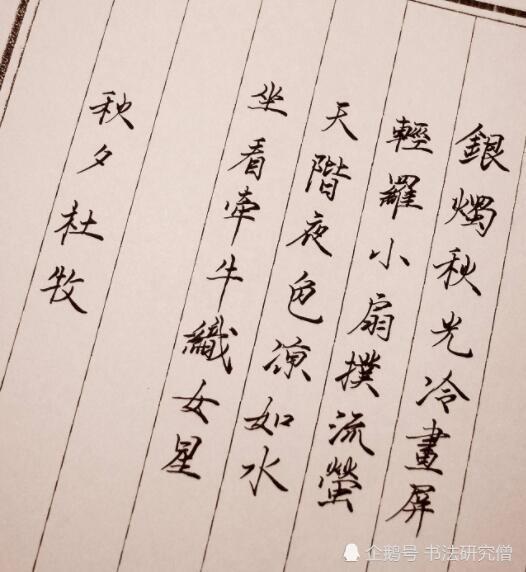 銀燭秋光冷畫屏
輕羅小扇撲流螢
天階夜色凉如水
坐看牽牛織女星
秋夕杜牧
企鹅号 书法研究僧